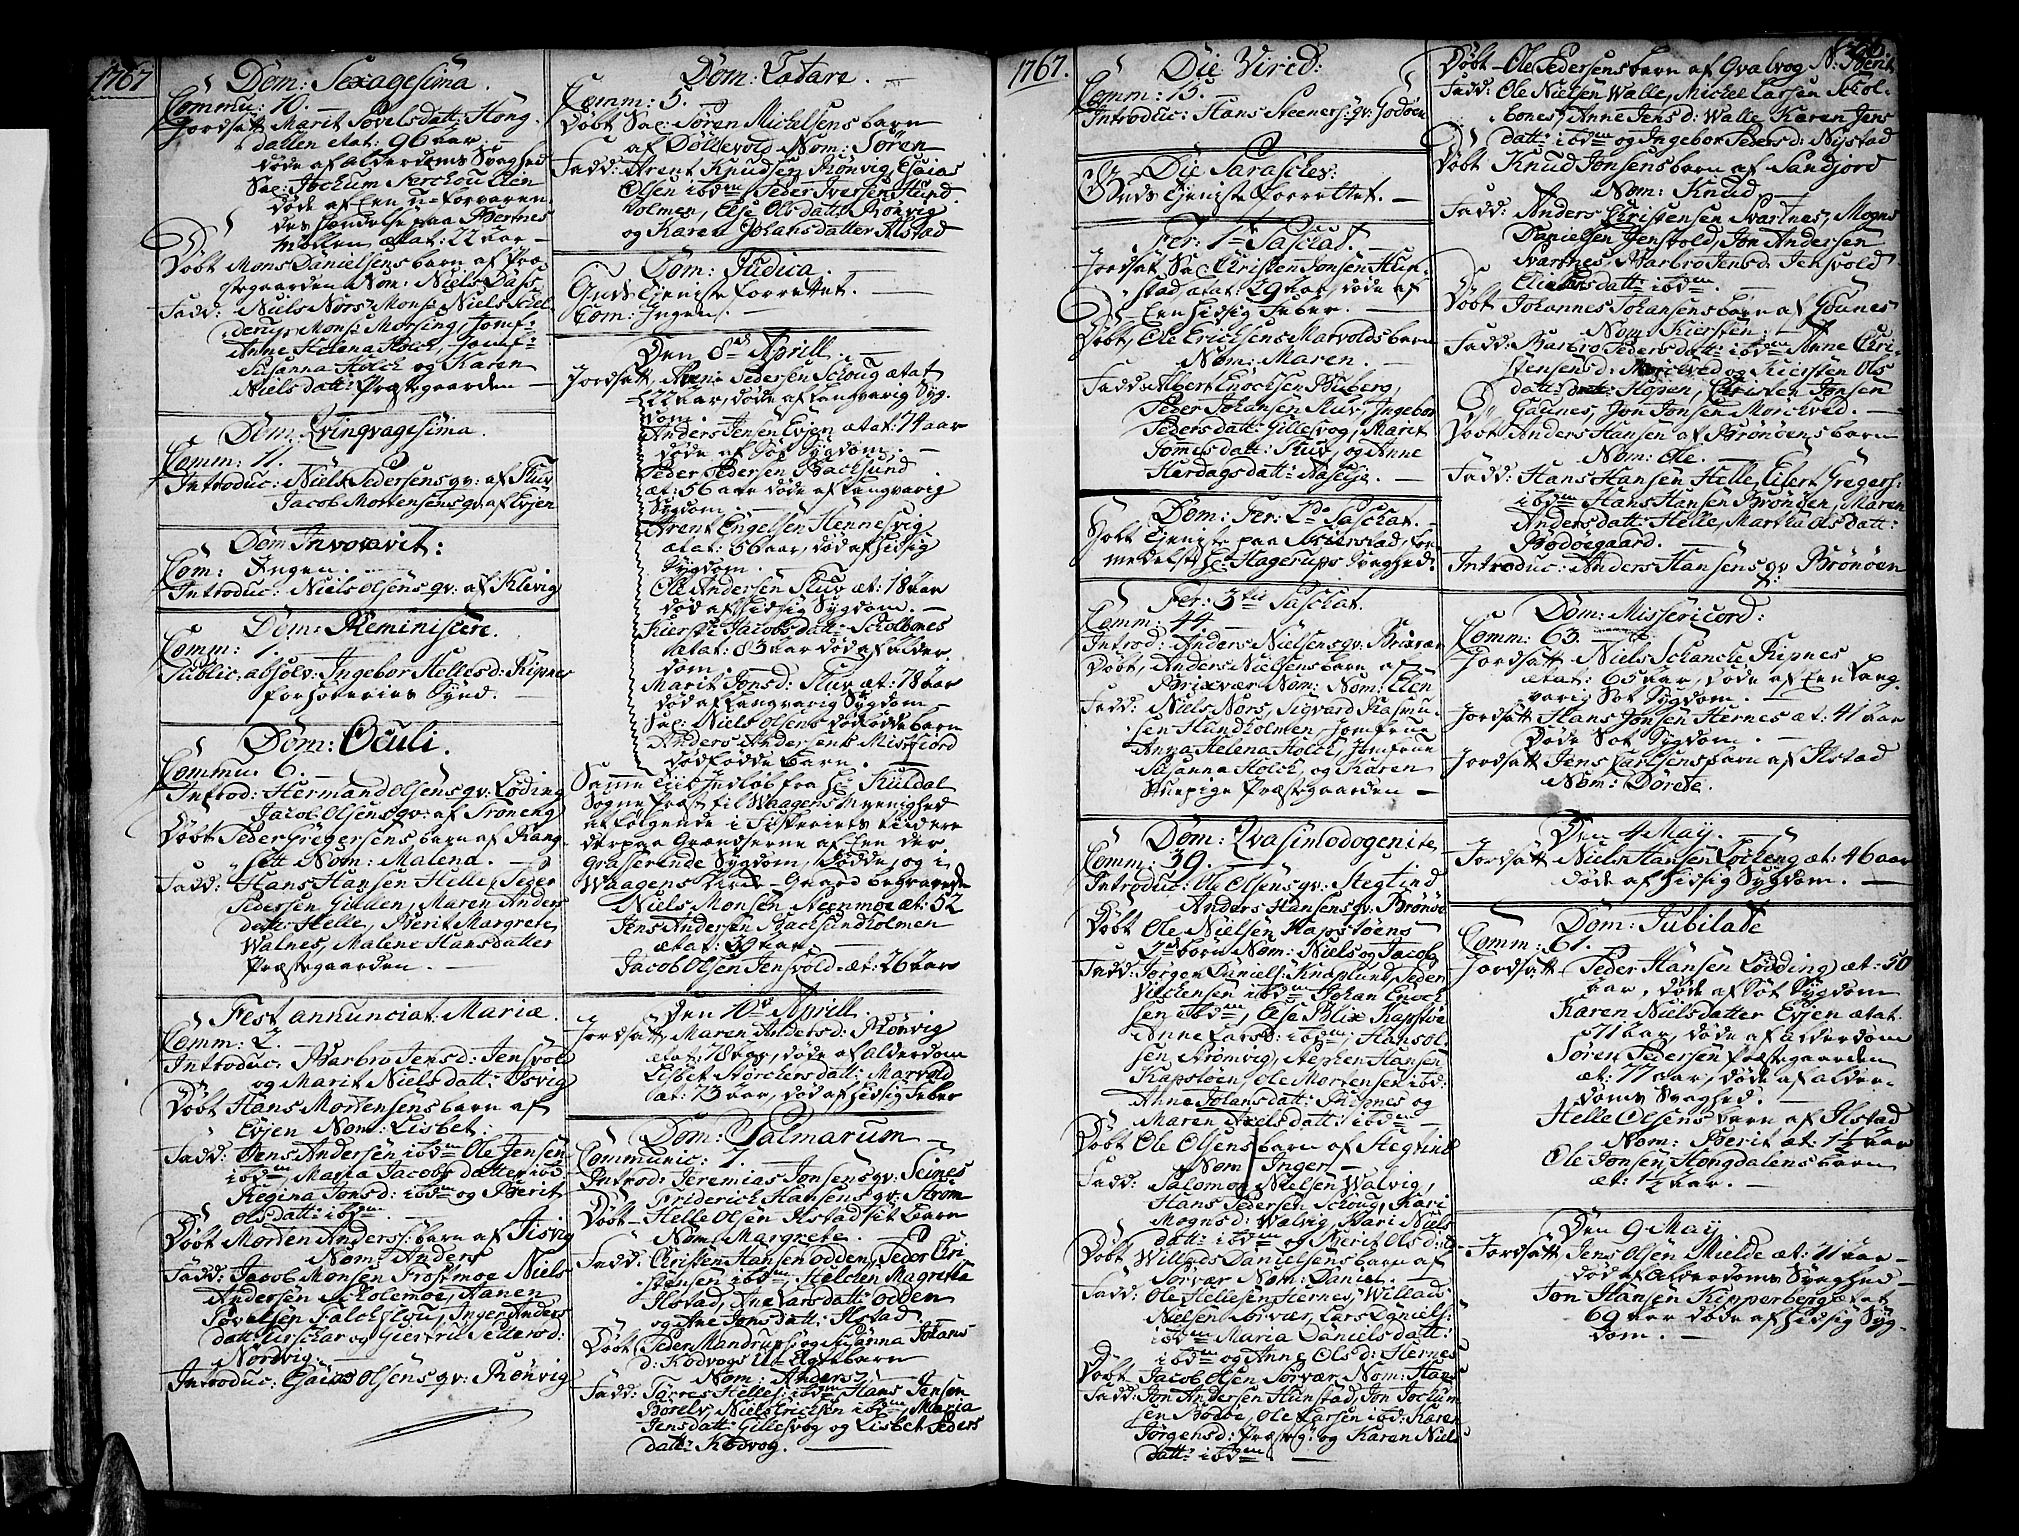 1767
Dom: Sexagesima.
Commu: 10.
Jordsatt Marit Povelsdatt: Hong-
dallen etat: 96 aar
døde af alderdoms Svaghed
Sac: Jochum
døde af Een u-forvaren
des hændelse paa Bertnes
Møllen ætat: 22 aar
Døbt Mons Danielsens barn af Præ-
stegaarden Nom: Niels Dass
Fadd: Niels Nors, Mons: Niels
Mons: Morsing, Jomf:
Anne Helena Holck, Jomf:
Susanna Holck og Karen
Nielsdatt: Præstegaarden
Dom: Qvinqvagesima.
Comm: 11.
Introduc: Niels Pedersens qv: af Skuv
Jacob Mortensens qv: af Evjen
Dom: Invocavit:
Com: Ingen.
Introduc: Niels Olsens qv: af Klevig
Dom: Reminiscere.
Comm: 1.
Public: absolv: Ingebor Hellesd: Ripnes
for Horeries Synd.
Dom: Oculi.
Commu: 6.
Introd: Herman Olsens qv: Løding
Jacob Olsens qv: af
Døbt Peder Gregersens barn af
Nom: Malena.
Fadd: Hans Hansen Helle, Peder
Pedersen Gillen, Maren Anders
datt: Helle, Berit Margrete
Walnes, Malene Hansdatter
Præstegaarden.
Fest annunciat: Mariæ.
Comm: 2.
Introduc: Barbro Jensd: Jensvold
og Marit Nielsdatt: Isvig
Døbt Hans Mortensens barn af
Evjen Nom: Lisbet:
Fadd: Jens Andersen ibdm Ole Jensen
ibdm, Maria Jacobs datter ibd
Regina Jonsd: ibdm og Berit
Olsdatt: ibdm.
Døbt Morten Anderss: barn af Jisvig
Nom: Anders
Fadd: Jacob Monsen Frostmoe Niels
Andersen Scholemoe, Hanen
Povelsen Falchflou, Inger Anders
datt: og Giertru Pedersd:
Nordvig.
Introduc: Esaias Olsens qv: Rønvig
Dom: Lætare.
Comm: 5.
Døbt Sac: Søren Michelsens barn
af Døllevold Nom: Søren
Fadd: Arent Knudsen Rønvig, Esaias
Olsen ibdm, Peder Iversen Hund-
holmen, Else Olsdatt: Rønvig
og Karen Johansdatter Alstad
Dom: Judica.
Guds Tjeniste forrettet.
Com: Ingen.
Den 8de Aprill.
Jordsatt, Pedersen Schoug ætat
22 aar, døde af langvarig Syg-
dom.
Anders Jensen Evjen ætat: 74 aar
døde af Sot Sygdom.
Peder Pedersen Bachsund
æt: 56 aar døde af langvarig
Sygdom.
Arent Engelsen Hennesvig
ætat: 56 aar, død af hidsig
Sygdom.
Ole Andersen Skuv æt: 18 aar
død af hidsig Sygdom.
Kiersti Jacobsdatt: Scholbones
ætat: 83 aar død af alder
dom.
Marit Jonsd: Skuv æt: 78 aar
død af langvarig Sygdom
Sac: Niels Olsens dødfødde barn
Anders Andersens Misfjord
dødfødde barn.
Samme Tiid Indløb fra Hr: Ruldal
Sogne Præst til Waagens Menighed
at følgende i Fiskeriets Tid ere
derpaa Grændserne af Een der
grasserende Sygdom, døde, og i
Waagens Kirke-Gaard begravede
Niels Monsen Steenmoe æt: 52
Jens Andersen Bachsundholmen
ætat: 39 aar
Jacob Olsen Jensvold æt: 26 aar
Den 10de Aprill.
Jordsatt, Maren Andersd: Rønvig
ætat: 78 aar, døde af alderdom
Lisbet Størchersdatt: Marvold
æt: 73 aar, død af hidsig Feber
Dom: Palmarum
Communic: 7.
Introd: Jeremias Jonsens qv: Seines
Friderich Hansens qv: Strøm
Døbt Helle Olsen Ilstad sit barn
Nom: Margrete.
Fadd: Christen Hansen Odden, Peder Chri
stensen ibdm, Helchien Magretta
Ilstad, Ane Larsdatt: Odden
og Ane Jonsdatt: Ilstad.
Døbt Peder Mandrups og Susanna Johans
d: Kodvogs U-Ægte barn
Nom: Anders
Fadd: Torres Helles: ibdm Hans Jensen
Børelv, Niels Erichsen ibdm, Maria
Jensdatt: Gillesvog og Lisbet Peders
datt: Kodvog.
1767.
Die Virid:
Comm: 15.
Introduc: Hans Steeners: qv: Godøen
Die Parascev:
Guds Tjeniste forrettet.
Fer: 1te Paschat.
Jordsat Sac: Christen Jonsen Hun-
stad ætat: 29 aar, døde af
Een hidsig Feber.
Døbt, Ole Erichsens Marvolds barn
Nom: Maren.
Fadd: Albert Enochsen Buberg,
Peder Johansen Skuv, Ingebor
Pedersdatt: Gillesvog, Marit
Tommesdatt: Skuv, og Anne
Hartvigsdatt: Naselje.
Dom: Fer: 2da Paschat.
Holt Tjeniste paa Skierstad, for-
medelst Hr: Hagerups Svaghed:
Fer: 3tii Paschat.
Comm: 44.
Introd: Anders Nielsens qv: Brixvær
Døbt, Anders Nielsens barn af
Brixvær Nom: Nom: Elen
Fadd: Niels Nors, Sigvard Rasmu-
sen Hundholmen, Jomfrue
Anna Helena Holck, Jomfrue
Susanna Holck, og Karen
Stuepige Præstegaarden
Dom: Qvasimodogenite,
Comm: 39.
Introduc: Ole Olsens qv: Stegtind
Anders Hansens qv: Brønøe
Døbt Ole Nielsen Kapstøens
2de børn Nom: Niels og Jacob
Fadd: Jørgen Daniels: Knaplund, Peder
Vilchensen ibdm Johan Enoch
sen ibdm, Else Blix Kapstøe
Anne Larsd: ibdm, Hans Ol-
sen Strømvig, Stephen Hansen
Kapstøen, Ole Mortensen ibd:
Anne Johansdatt: Skipnes og
Maren Axelsdatt: ibdm
Døbt Ole Olsens barn af Stegtind
Nom: Inger
Fadd: Salomon Nielsen Walvig,
Hans Pedersen Schoug, Kari
Mognsd: Walvig, Kari Niels
datt: ibdm og Berit Olsd:
Døbt Willads Danielsens barn af
Sorvær Nom: Daniel.
Fadd: Ole Hellesen Hernes, Willads
Nielsen Sorvær, Lars Daniels:
ibdm Maria Danielsdatt:
ibdm og Anne Olsd: Hernes
Døbt Jacob Olsen Sorvær Nom: Hans
Fadd: Jon Andersen Hunstad, Jon Jochum
sen Bodøe, Ole Larsen ibd: Karen
Jørgensd: Præsteg: og Karen Niels
datt: ibdm
Døbt Ole Pedersens barn af Qvalvog N: Berit
Fadd: Ole Nielsen Walle, Michel Larsen Schol-
bones, Anne Jensd: Walle Karen Jens
datt: ibdm og Ingebor Pedersd: Nystad
Døbt Knud Jonsens barn af Sandjord
Nom: Knud.
Fadd: Anders Christensen Svartnes, Mogns
Danielsen Jensvold, Jon Andersen
Svartnes, Barbro Jensd: Jensvold
datt: ibdm.
Døbt Johannes Johansens barn af Godønes
Nom: Kiersten:
Fadd: Barbro Pedersdatt: ibdm Anne Chri-
stensensd: Morchved og Kiersten Ols
datt: Hopen, Christen Jonsen
Gaunes, Jon Jonsen Morchved.
Døbt Anders Hansen af Brønøens barn
Nom: Ole.
Fadd: Hans Hansen Helle, Eilert Gregers:
ibdm Hans Hansen Brønøen, Maren
Andersdatt: Helle, Martha Olsdatt:
Bodøegaard.
Introduc: Anders Hansens qv: Brønøen
Dom: Misericord:
Comm: 63.
Jordsatt Niels Schancke Ripnes
ætat: 65 aar, døde af Een lang-
varig Sot Sygdom.
Jordsatt Hans Jonsen Hernes æt: 41 aar
Døde Sot Sygdom.
Jordsatt Jens Carlsens barn af Ilstad
Nom: Dorete.
Den 4 May.
Jordsatt Niels Hansen Locheng æt: 46 aar
døde af hidsig Sygdom.
Dom: Jubilate
Comm: 61.
Jordsatt Peder Hansen Lødding æt: 50
aar, døde af Sot Sygdom
Karen Nielsdatter Evjen ætat
71 aar, døde af alderdom
Søren Pedersen Præstegaarden
æt: 77 aar, døde af alder-
doms Svaghed.
Helle Olsens barn af Ilstad
Nom: Berit at: 1½ aar
Ole Jonsen Hongdalens barn
æt: ½ aar.
Den 9 May
Jordsatt Jens Olsen Mielde æt: 71 aar
død af alderdoms Svaghed
Jon Hansen Kipperberg ætat
69 aar døde af hidsig Syg-
dom.